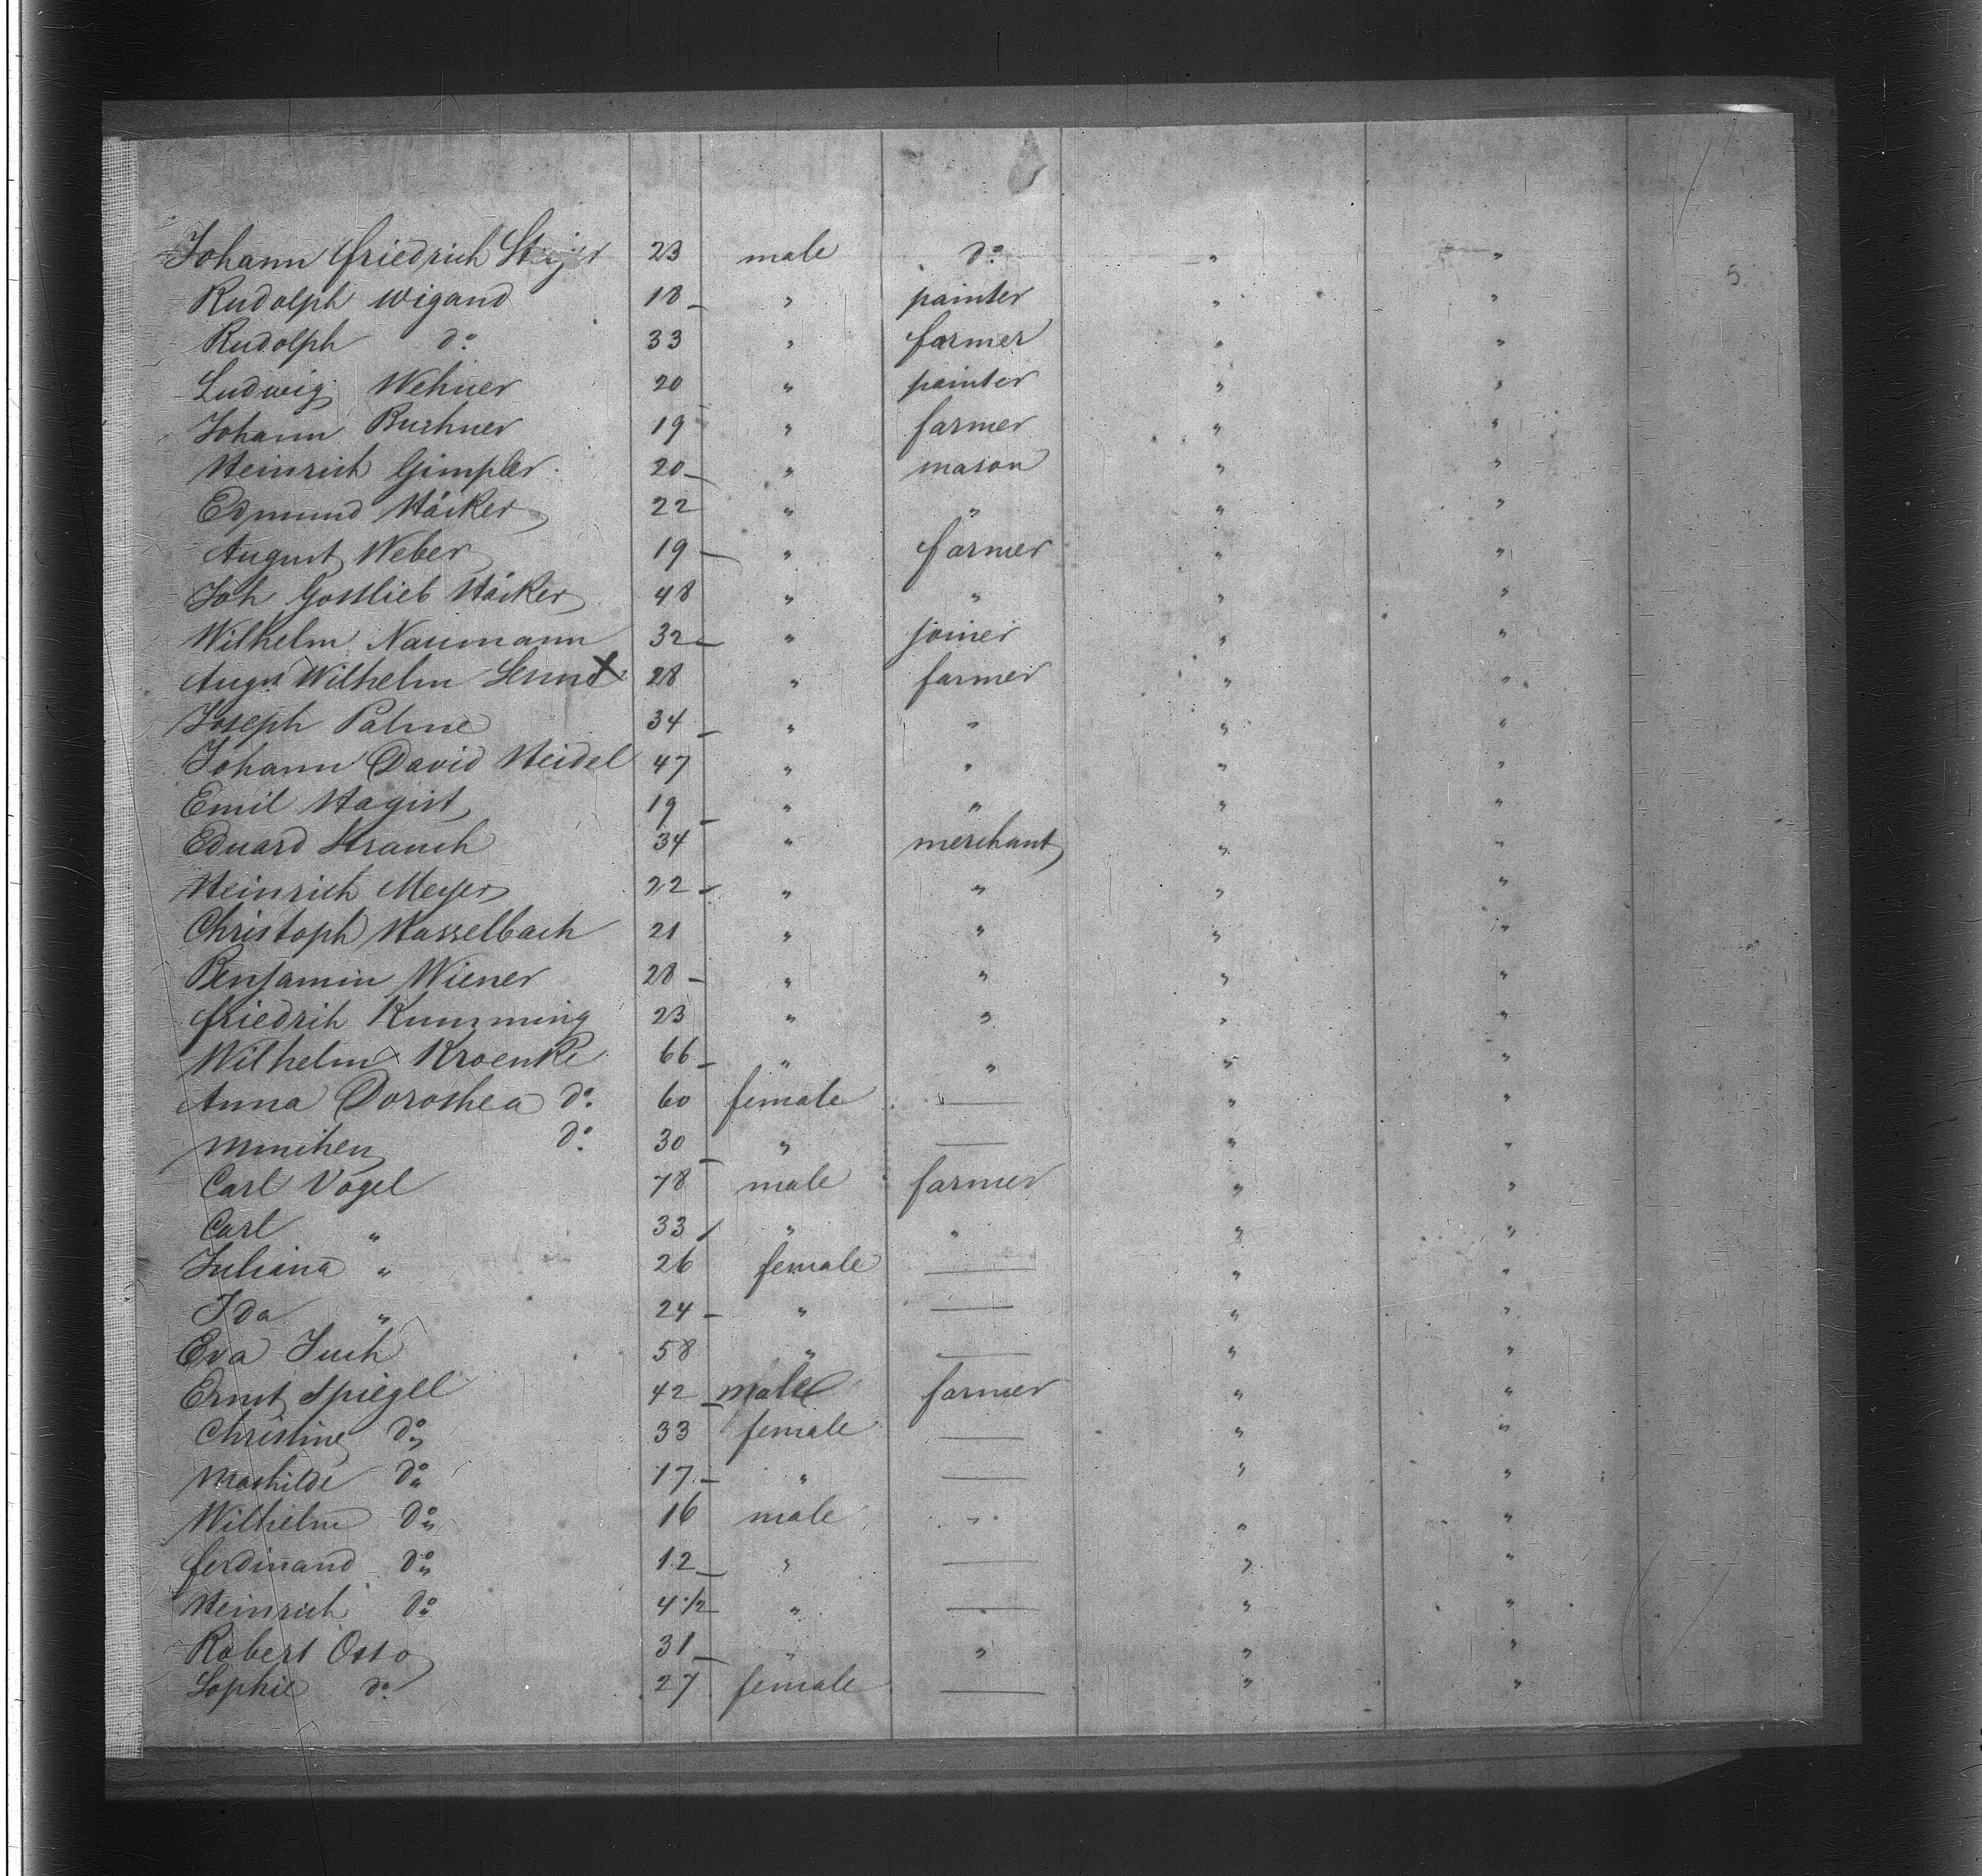 Johann Friedrich 23 male do " "
Rudolph Wigand 18 " painter " "
Rudolph do 33 " farmer " "
Ludwig Wehner 20 " painter " "
Johann Buchner 19 " farmer " "
Heinrich Gimpler 20 " mason " "
Edmund Häcker 22 " " " "
August Weber 19 " farmer " "
Joh Gottlieb Häcker 48 " " " "
Wilhelm Naumann 32 " joiner " "
Augu Wilhelm 28 " farmer " "
Joseph Palme 34 " " " "
Johann David Heidel 47 " " " "
Emil Hagist 19 " " " "
Eduard Strauch 34 " merchant " "
Heinrich Meyer 22 " " " "
Christoph Hasselbach 21 " " " "
Benjamin Wiener 28 " " " "
Friedrih Kumming 23 " " " "
Wilhelm Kroenke 66 " " " "
Anna Dorothea do 60 female — " "
Minchen do 30 " — " "
Carl Vogel 78 male farmer " "
Carl " 33 " " " "
Juliana " 26 female — " "
Ida " 24 " — " "
Eva Juch 58 " — " "
Ernst Spiegel 42 male farmer " "
Christine do 33 female — " "
Mathilde do 17 " — " "
Wilhelm do 16 male " " "
Ferdinand do 12 " — " "
Heinrich do 4 1/2 " — " "
Robert Otto 31 " " " "
Sophie do 27 female — " "
5